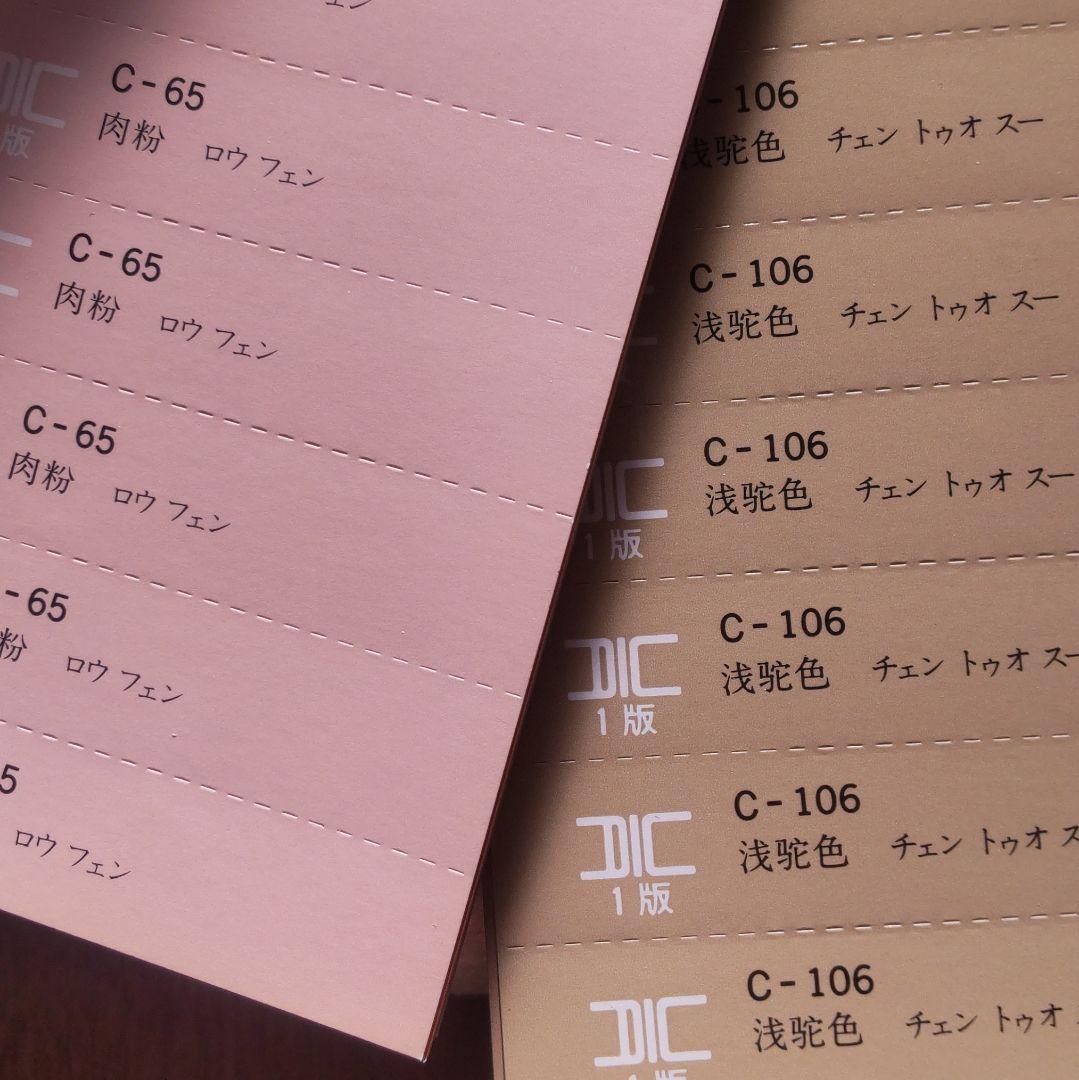 ェン
DIC
版
C-65
肉粉 ロウ フェン
C-65
肉粉 ロウ フェン
C-65
肉粉 ロウ フェン
-65
粉 ロウ フェン
5
ロウ フェン
-106
浅驼色 チェン トゥオ スー
C-106
浅驼色 チェン トゥオ スー
DIC
1版
C-106
浅驼色 チェン トゥオ スー
DIC
1版
C-106
浅驼色 チェン トゥオ スー
DIC
1版
C-106
浅驼色 チェン トゥオ ス
DIC
1版
C-106
浅驼色 チェン トゥオ